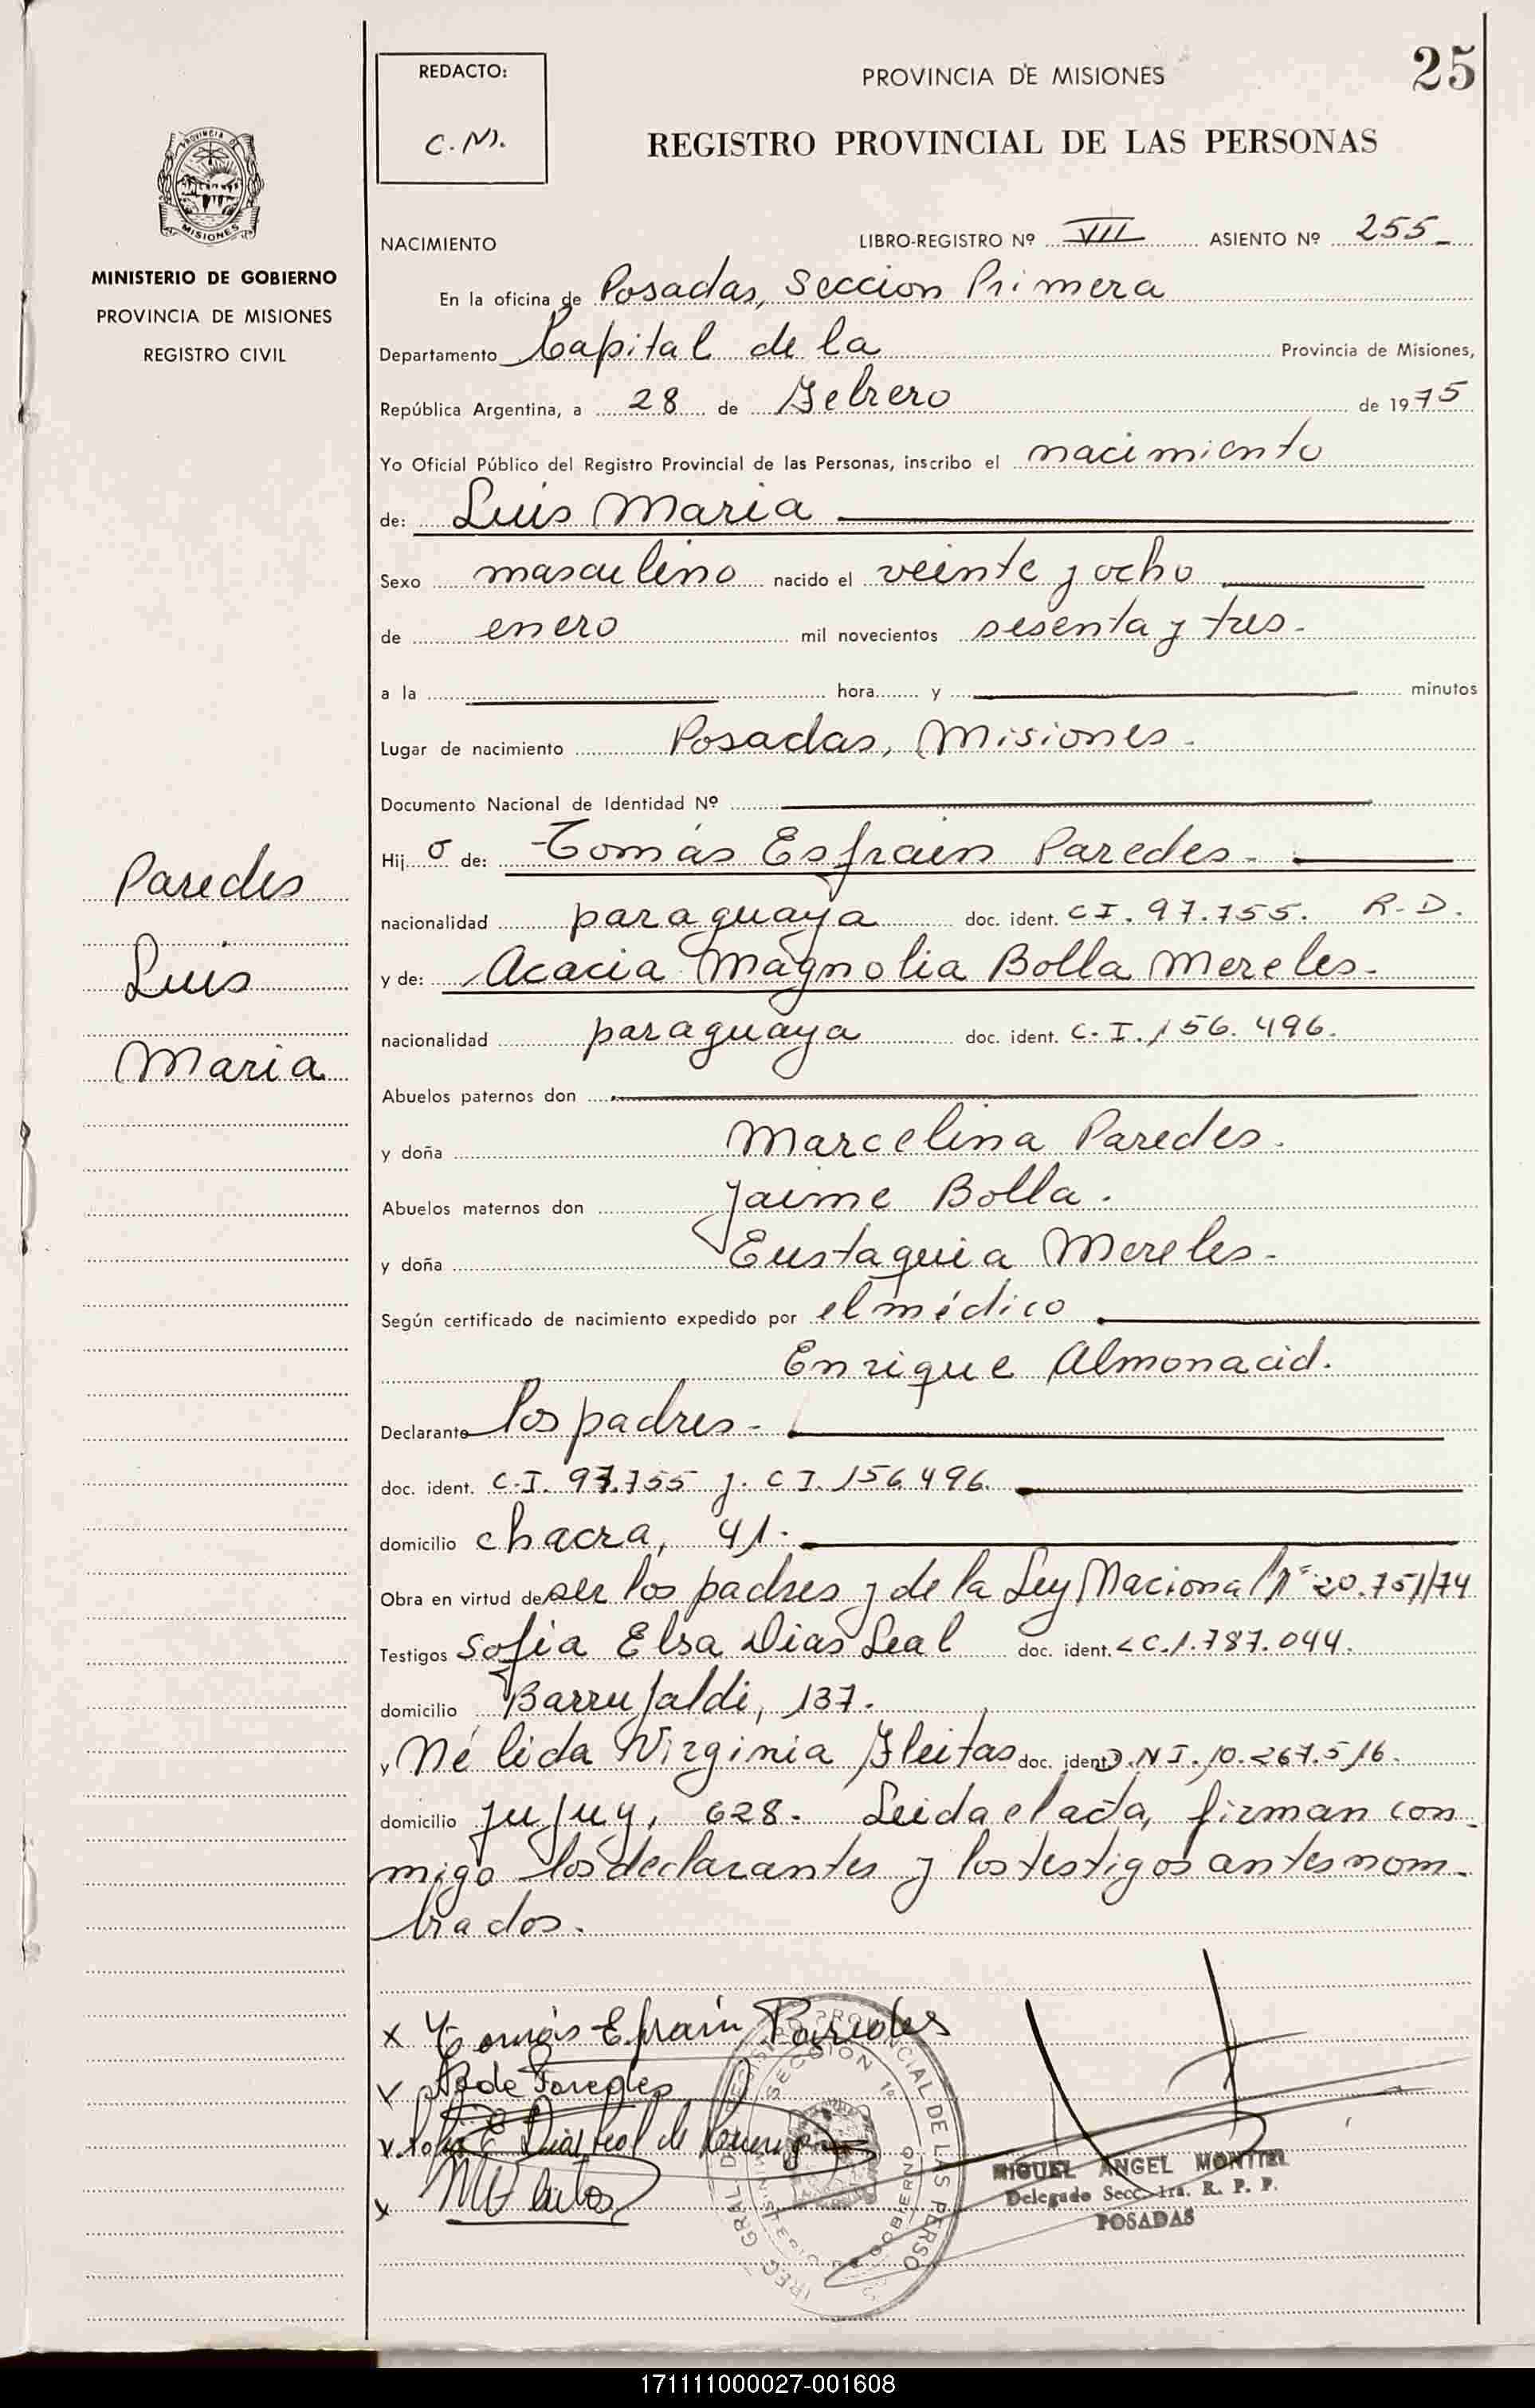 REDACTO:
C.M.
PROVINCIA DE MISIONES
25
REGISTRO PROVINCIAL DE LAS PERSONAS
PROVINCIA D
MISIONES
MINISTERIO DE GOBIERNO
PROVINCIA DE MISIONES
REGISTRO CIVIL
NACIMIENTO LIBRO-REGISTRO Nº VII ASIENTO Nº 255
En la oficina de Posadas, Seccion Primera
Departamento Capital de la Provincia de Misiones,
República Argentina, a 28 de Febrero de 1975
Yo Oficial Público del Registro Provincial de las Personas, inscribo el nacimiento
de: Luis Maria
Sexo masculino nacido el veinte y ocho
de enero mil novecientos sesenta y tres.
a la hora y minutos
Lugar de nacimiento Posadas, Misiones.
Documento Nacional de Identidad Nº
Hij o de: Tomás Esfrain Paredes.
nacionalidad paraguaya doc. ident. C I. 97.755. R.D.
y de: Acacia Magnolia Bolla Mereles.
nacionalidad paraguaya doc. ident. C. I. 156.496.
Abuelos paternos don
y doña Marcelina Paredes.
Abuelos maternos don Jaime Bolla.
y doña Eustaquia Mereles.
Según certificado de nacimiento expedido por el médico
Enrique Almonacid.
Declarante los padres.
doc. ident. C.I. 97.755 y. C I. 156.496.
domicilio chacra, 41.
Obra en virtud de ser los padres y de la Ley Nacional Nº 20.751/74
Testigos Sofia Elsa Dias Leal doc. ident. LC.1.787.044.
domicilio Barrufaldi, 137.
y Nélida Virginia Fleitas doc. ident. D.N I. 10.267.516.
domicilio Jujuy, 628. Leida el acta, firman con-
migo los declarantes y los testigos antes nom-
brados.
Paredes
Luis
Maria
x Tomás Efraín Paredes
de Paredes
MIGUEL ANGEL MONTIEL
Delegado Secc. 1ra. R. P. P.
POSADAS
171111000027-001608